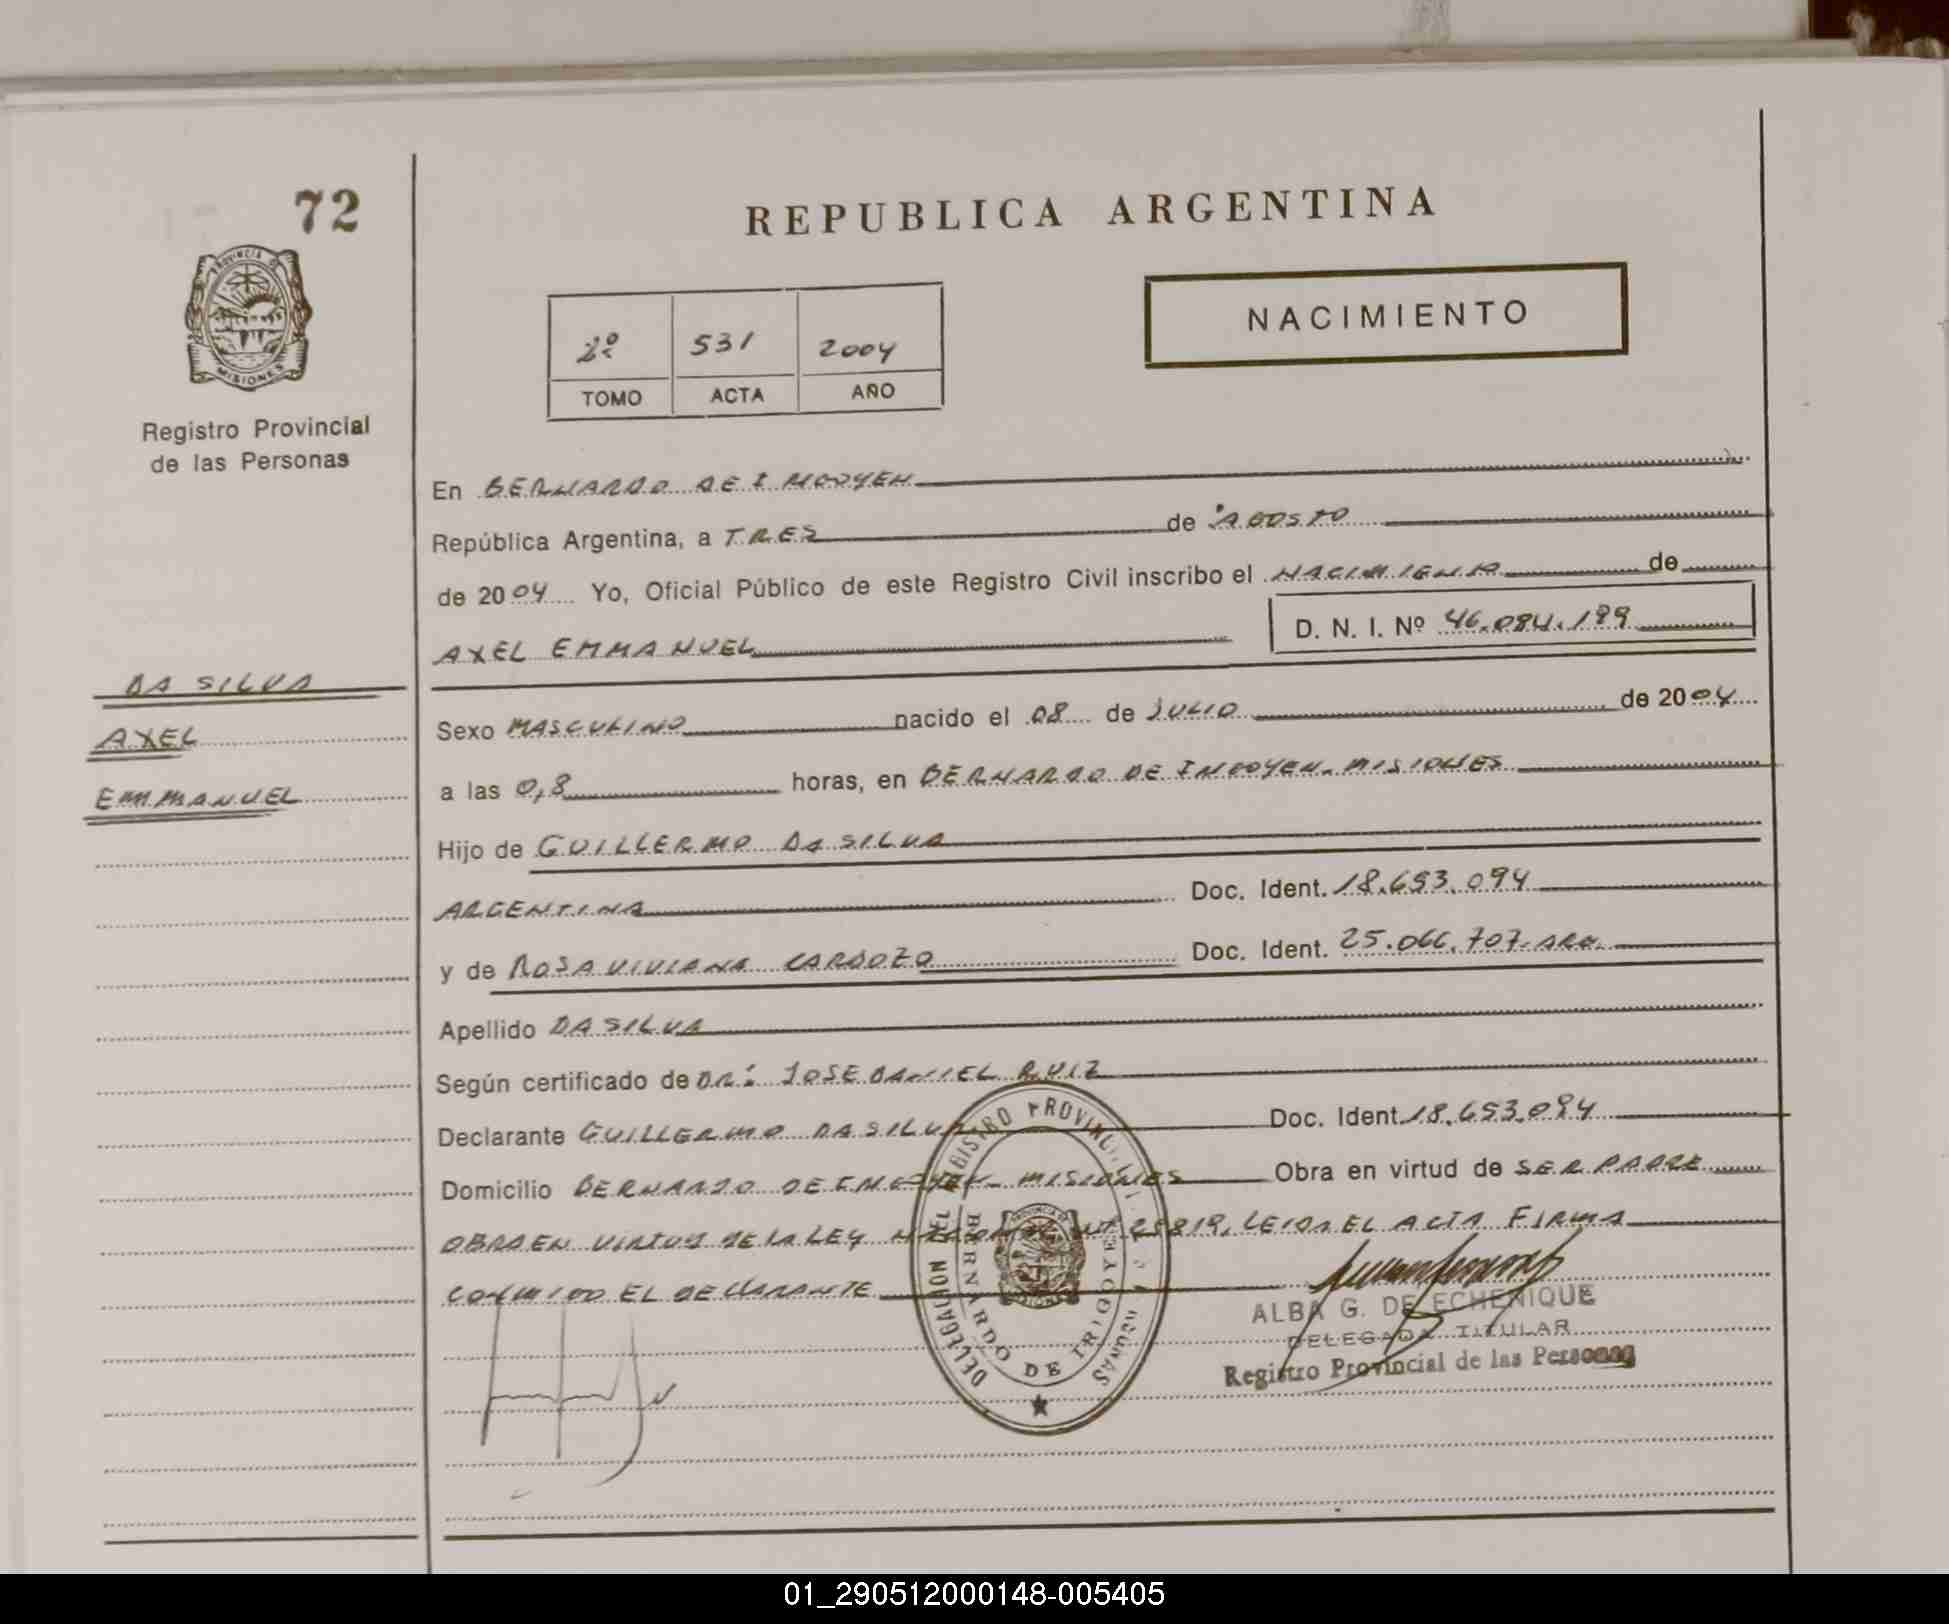 72
PROVINCIA DE
MISIONES
Registro Provincial
de las Personas
DA SILVA
AXEL
EMMANUEL
REPUBLICA ARGENTINA
NACIMIENTO
2º 531 2004
TOMO ACTA AÑO
En BERNARDO DE IRIGOYEN
República Argentina, a TRES de AGOSTO
de 2004 Yo, Oficial Público de este Registro Civil inscribo el NACIMIENTO de
AXEL EMMANUEL D. N. I. Nº 46.084.199
Sexo MASCULINO nacido el 08 de JULIO de 2004
a las 0,8 horas, en BERNARDO DE IRIGOYEN - MISIONES
Hijo de GUILLERMO DA SILVA
ARGENTINA Doc. Ident. 18.653.094
y de ROSA VIVIANA CARDOZO Doc. Ident. 25.066.707-ARG.
Apellido DA SILVA
Según certificado de DR: JOSE DANIEL RUIZ
Declarante GUILLERMO DA SILVA Doc. Ident. 18.653.094
Domicilio BERNARDO DE IRIGOYEN - MISIONES Obra en virtud de SER PADRE
OBRA EN VIRTUD DE LA LEY NACIONAL Nº 25819, LEIDA EL ACTA FIRMA
CONMIGO EL DECLARANTE
DELEGACION DEL REGISTRO PROVINCIAL
BERNARDO DE IRIGOYEN
ALBA G. DE ECHENIQUE
DELEGADA TITULAR
Registro Provincial de las Personas
01_290512000148-005405